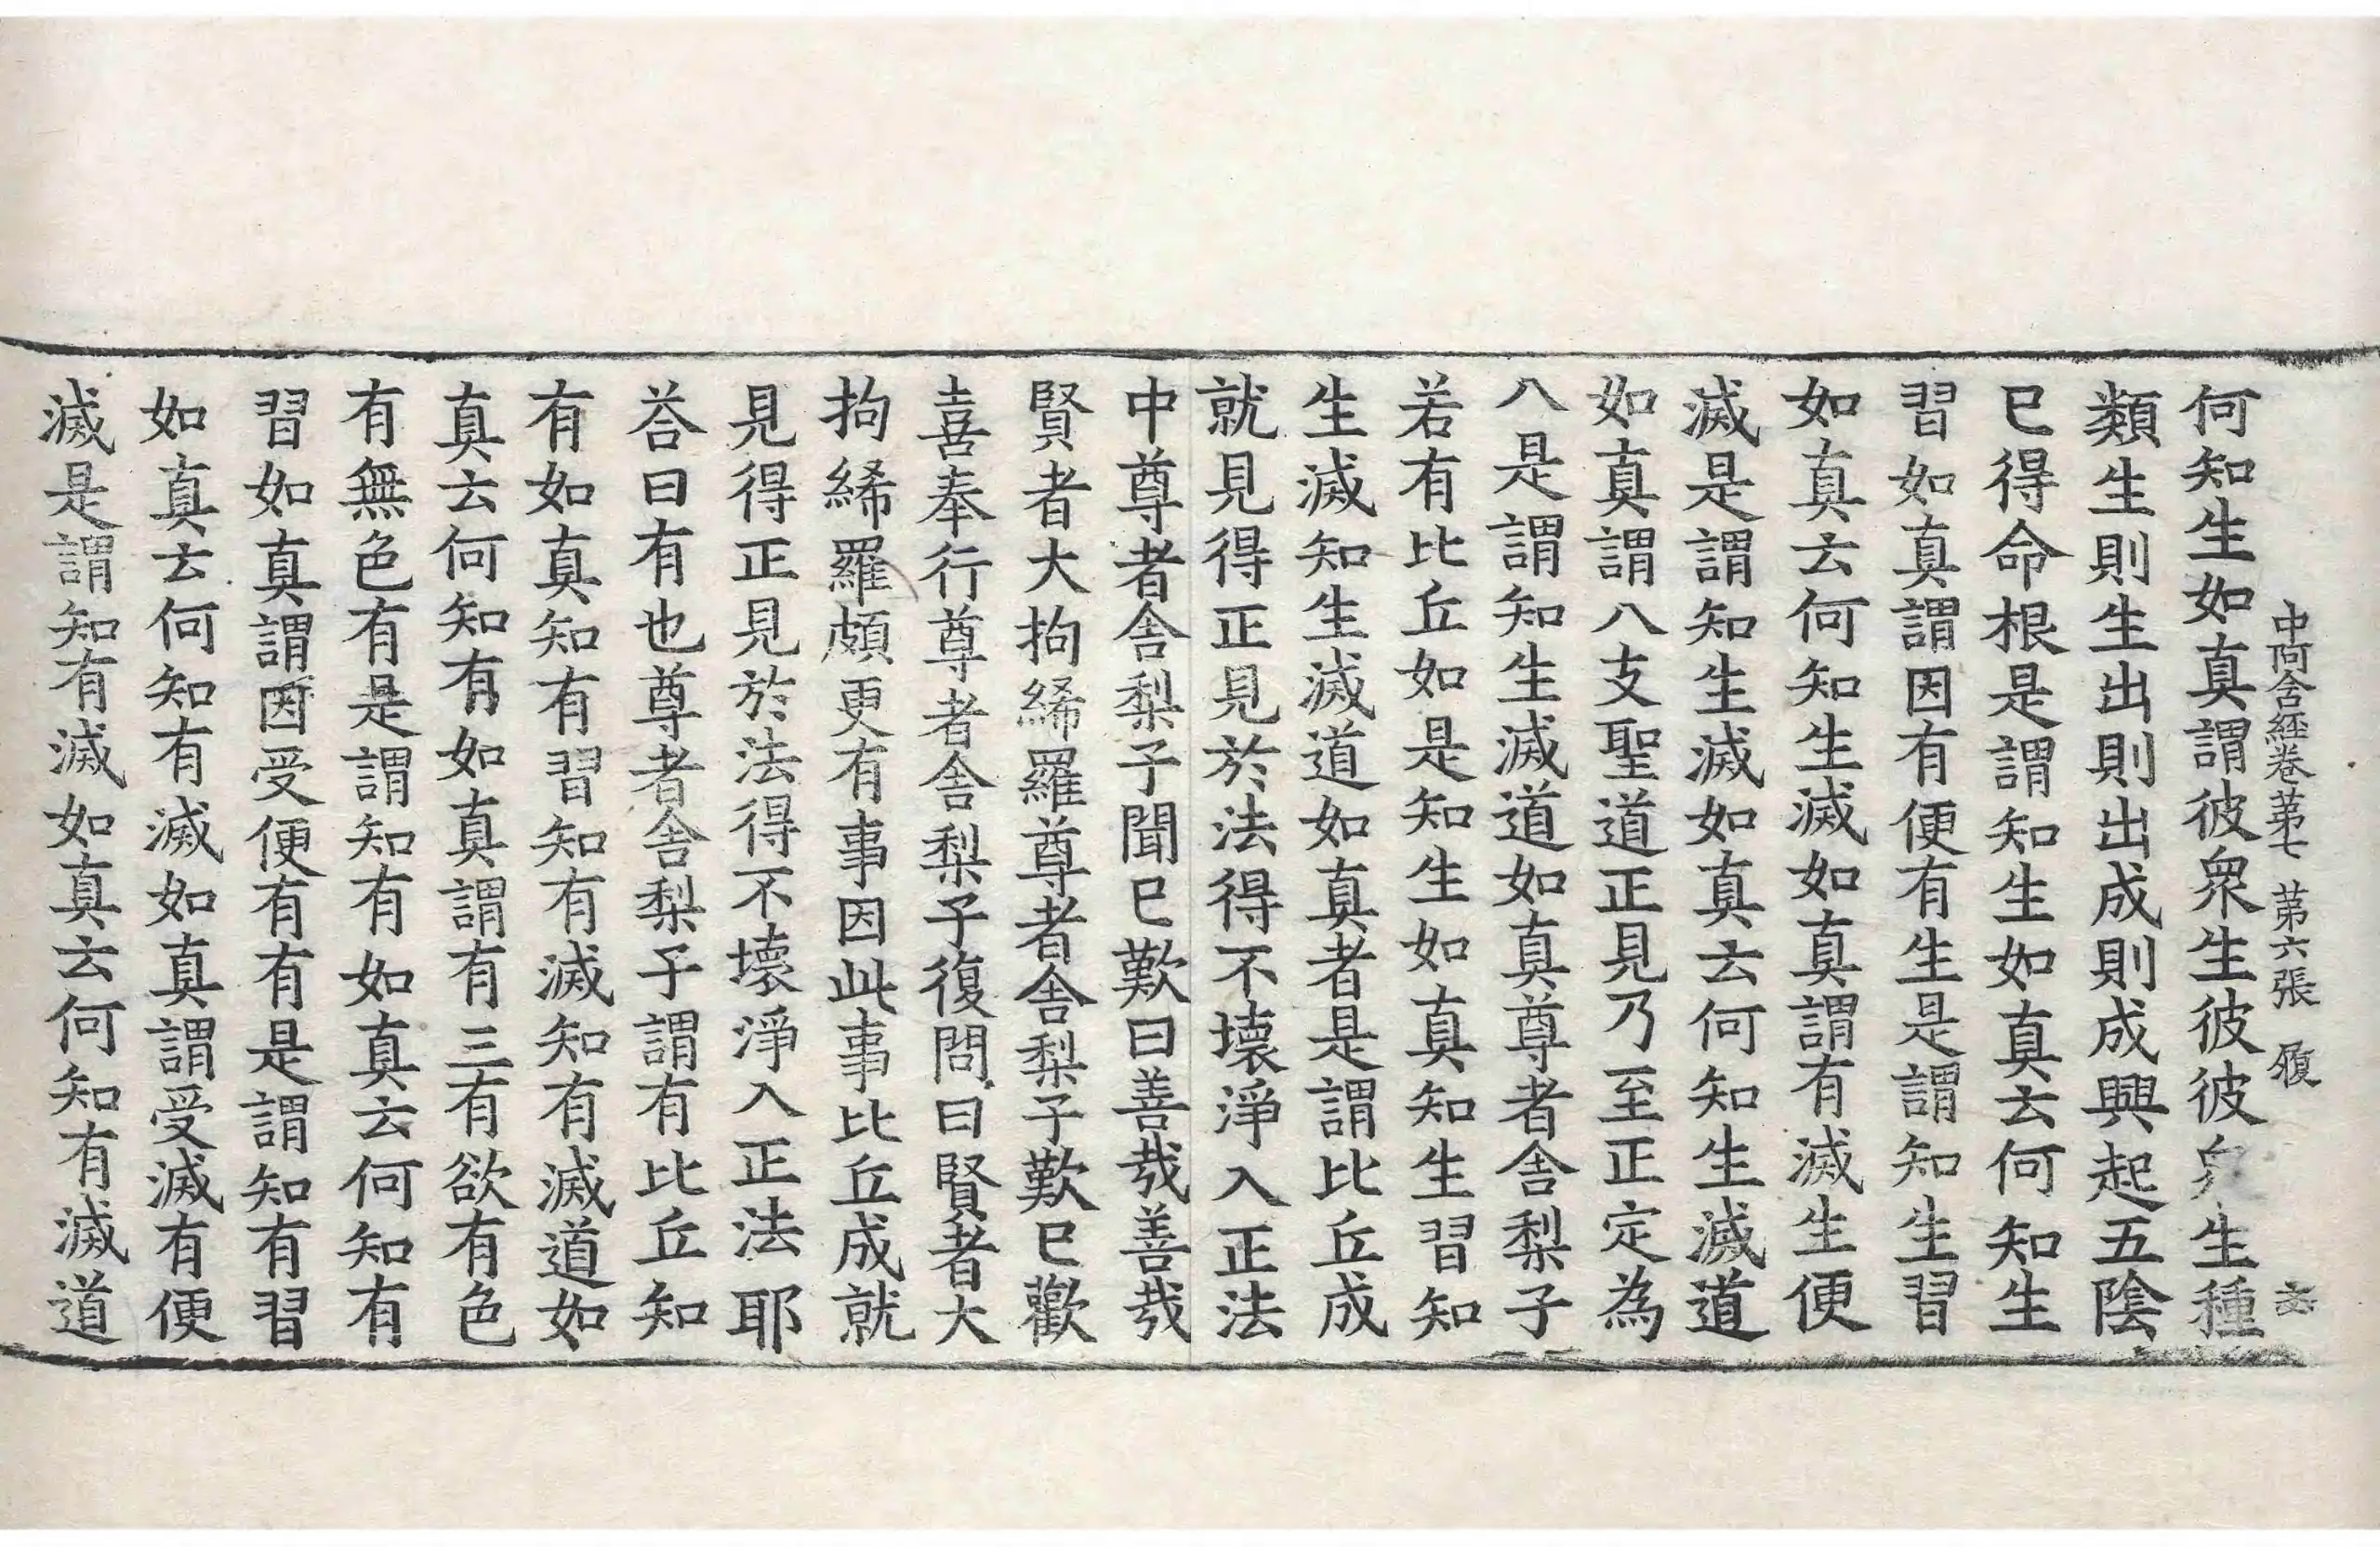 中阿含經卷苐七 苐六張 履
何知生如真謂彼衆生彼彼衆生種
類生則生出則出成則成興起五陰
已得命根是謂知生如真云何知生
習如真謂因有便有生是謂知生習
如真云何知生滅如真謂有滅生便
滅是謂知生滅如真云何知生滅道
如真謂八支聖道正見乃至正定為
八是謂知生滅道如真尊者舎梨子
若有比丘如是知生如真知生習知
生滅知生滅道如真者是謂比丘成
就見得正見於法得不壞淨入正法
中尊者舎梨子聞已歎曰善㢤善㢤
賢者大拘絺羅尊者舎梨子歎已歡
喜奉行尊者舎梨子復問曰賢者大
拘絺羅頗更有事因此事比丘成就
見得正見於法得不壞淨入正法耶
荅曰有也尊者舎梨子謂有比丘知
有如真知有習知有滅知有滅道如
真云何知有如真謂有三有欲有色
有無色有是謂知有如真云何知有
習如真謂因受便有有是謂知有習
如真云何知有滅如真謂受滅有便
滅是謂知有滅如真云何知有滅道